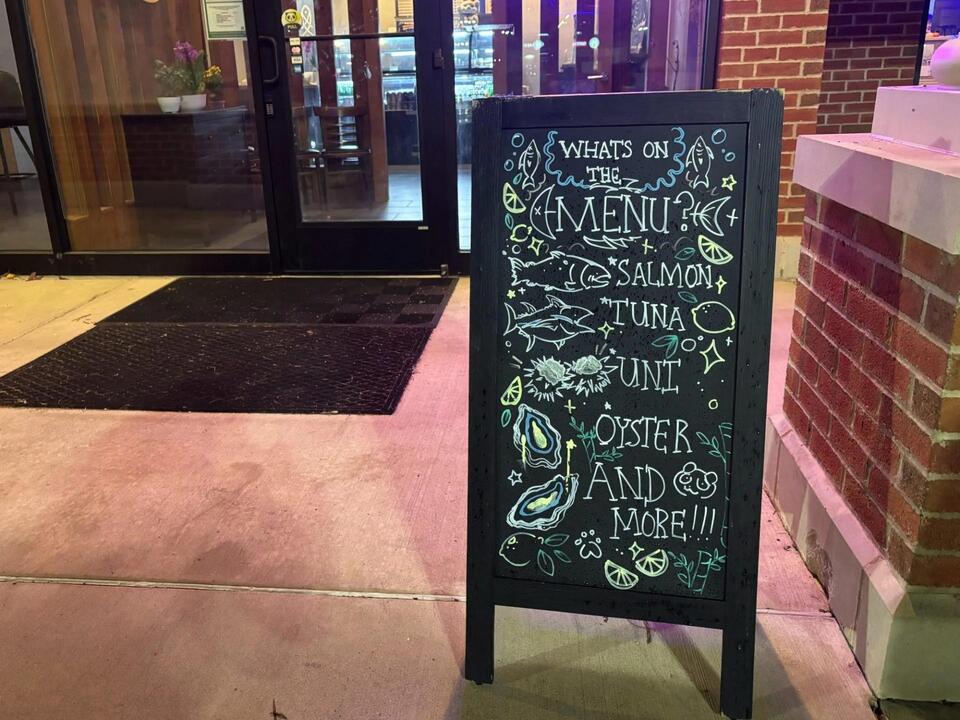 WHAT'S ON
THE
MENU?
*SALMON
*TUNA
*UNI
*OYSTER
AND
MORE!!!
PULL